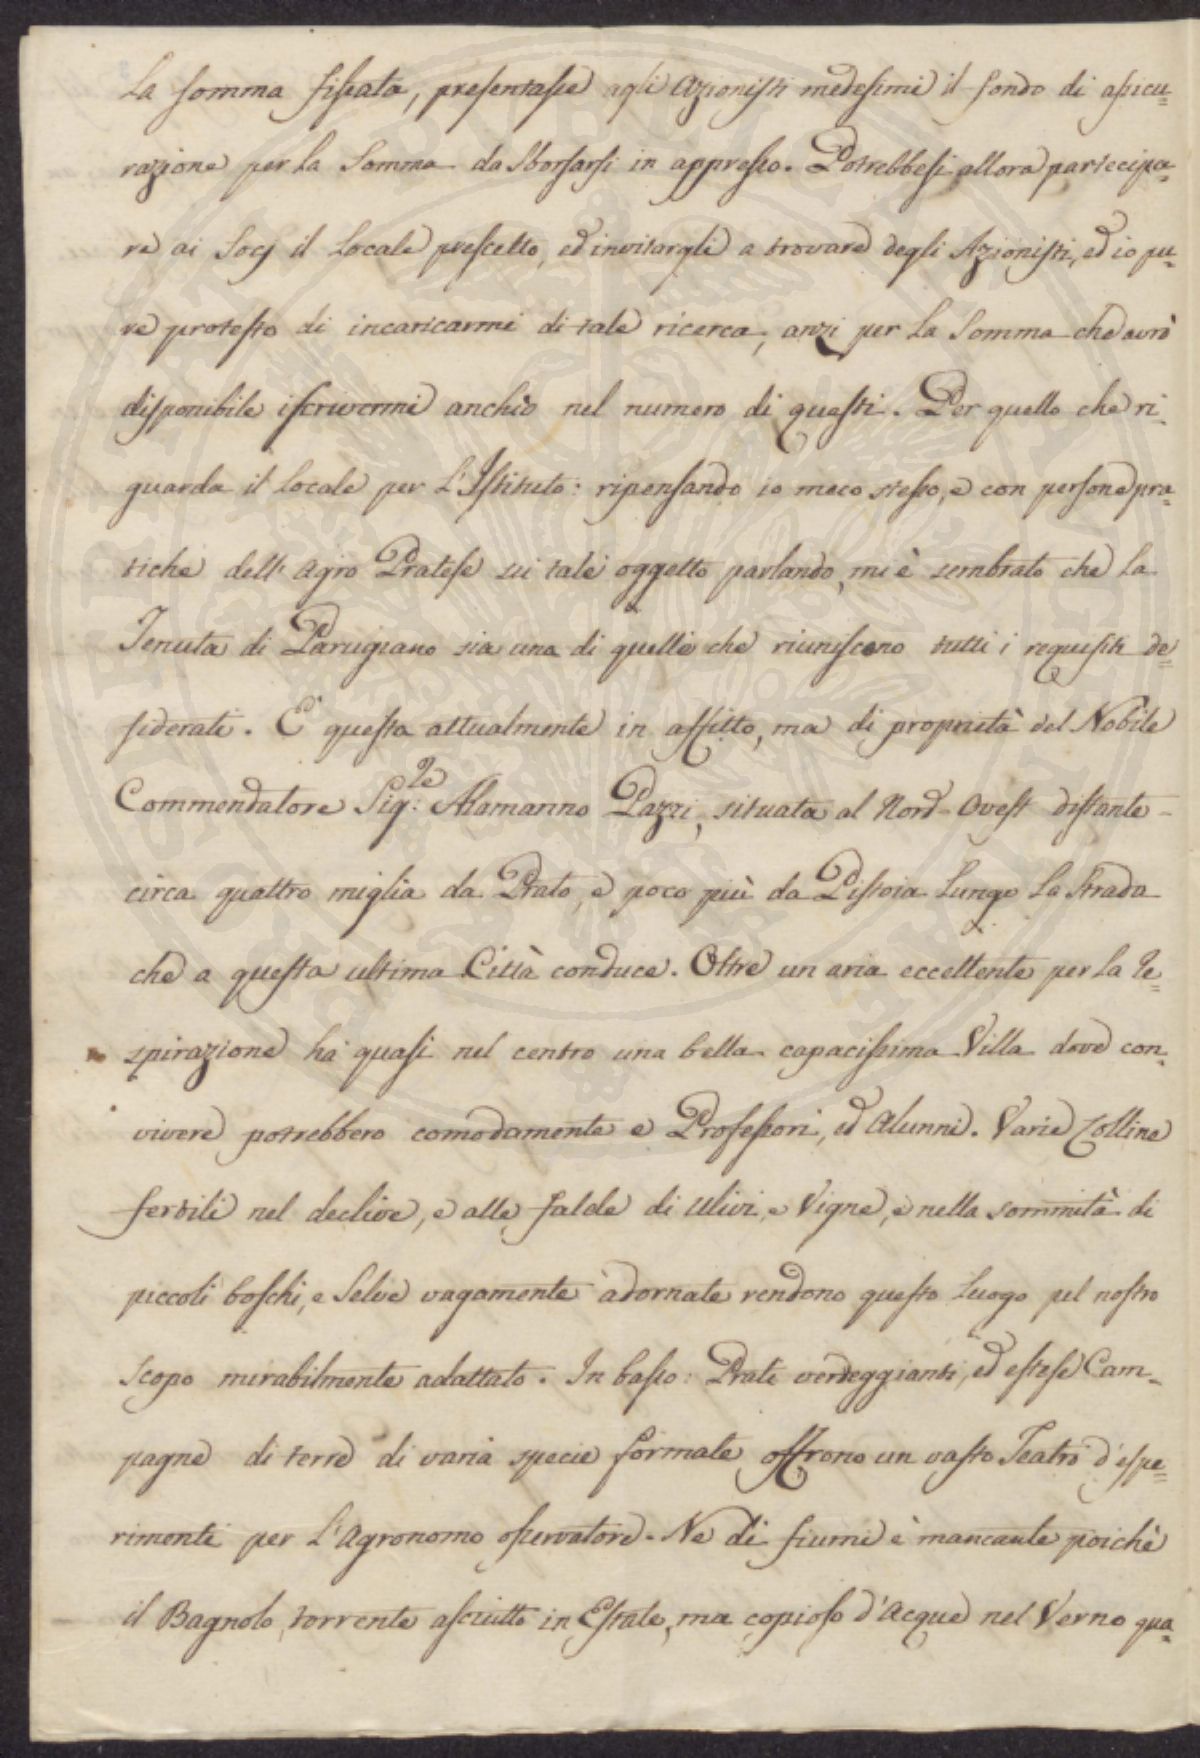 La somma fissata, presentasse agli Azionisti medesimi il fondo di assicu=
razione per la Somma da sborsarsi in appresso. Potrebbesi allora partecipa=
re ai Socj il Locale prescelto, ed invitargli a trovare degli Azionisti, ed io pu=
re protesto di incaricarmi di tale ricerca, anzi per la Somma che avrò
disponibile iscrivermi anchio nel numero di questi. Per quello che ri=
guarda il Locale per L'Istituto: ripensando io meco stesso, e con persone pra=
tiche dell'Agro Pratese su tale oggetto parlando, mi è sembrato che la
Tenuta di Parugiano sia una di quelle che riuniscono tutti i requisiti de=
siderati. E' questa attualmente in affitto, ma di proprietà del Nobile
Commendatore Sig:re Alamanno Pazzi, situata al Nord-Ovest distante
circa quattro miglia da Prato, e poco più da Pistoia Lungo La Strada
che a questa ultima Città conduce. Oltre un aria eccellente per la Re=
spirazione ha quasi nel centro una bella capacissima Villa dove con=
vivere potrebbero comodamente e Professori, ed Alunni. Varie Colline
fertili nel declive, e alle falde di Ulivi, e Vigne, e nella sommità di
piccoli boschi, e Selve vagamente adornate rendono questo Luogo pel nostro
scopo mirabilmente adattato. In basso: Prati verdeggianti, ed estese Cam=
pagne di terre di varia specie formate offrono un vasto Teatro d'espe=
rimenti per L'Agronomo osservatore. Ne di fiumi è mancante poichè
il Bagnolo, torrente asciutto in Estate, ma copioso d'Acque nel Verno qua=